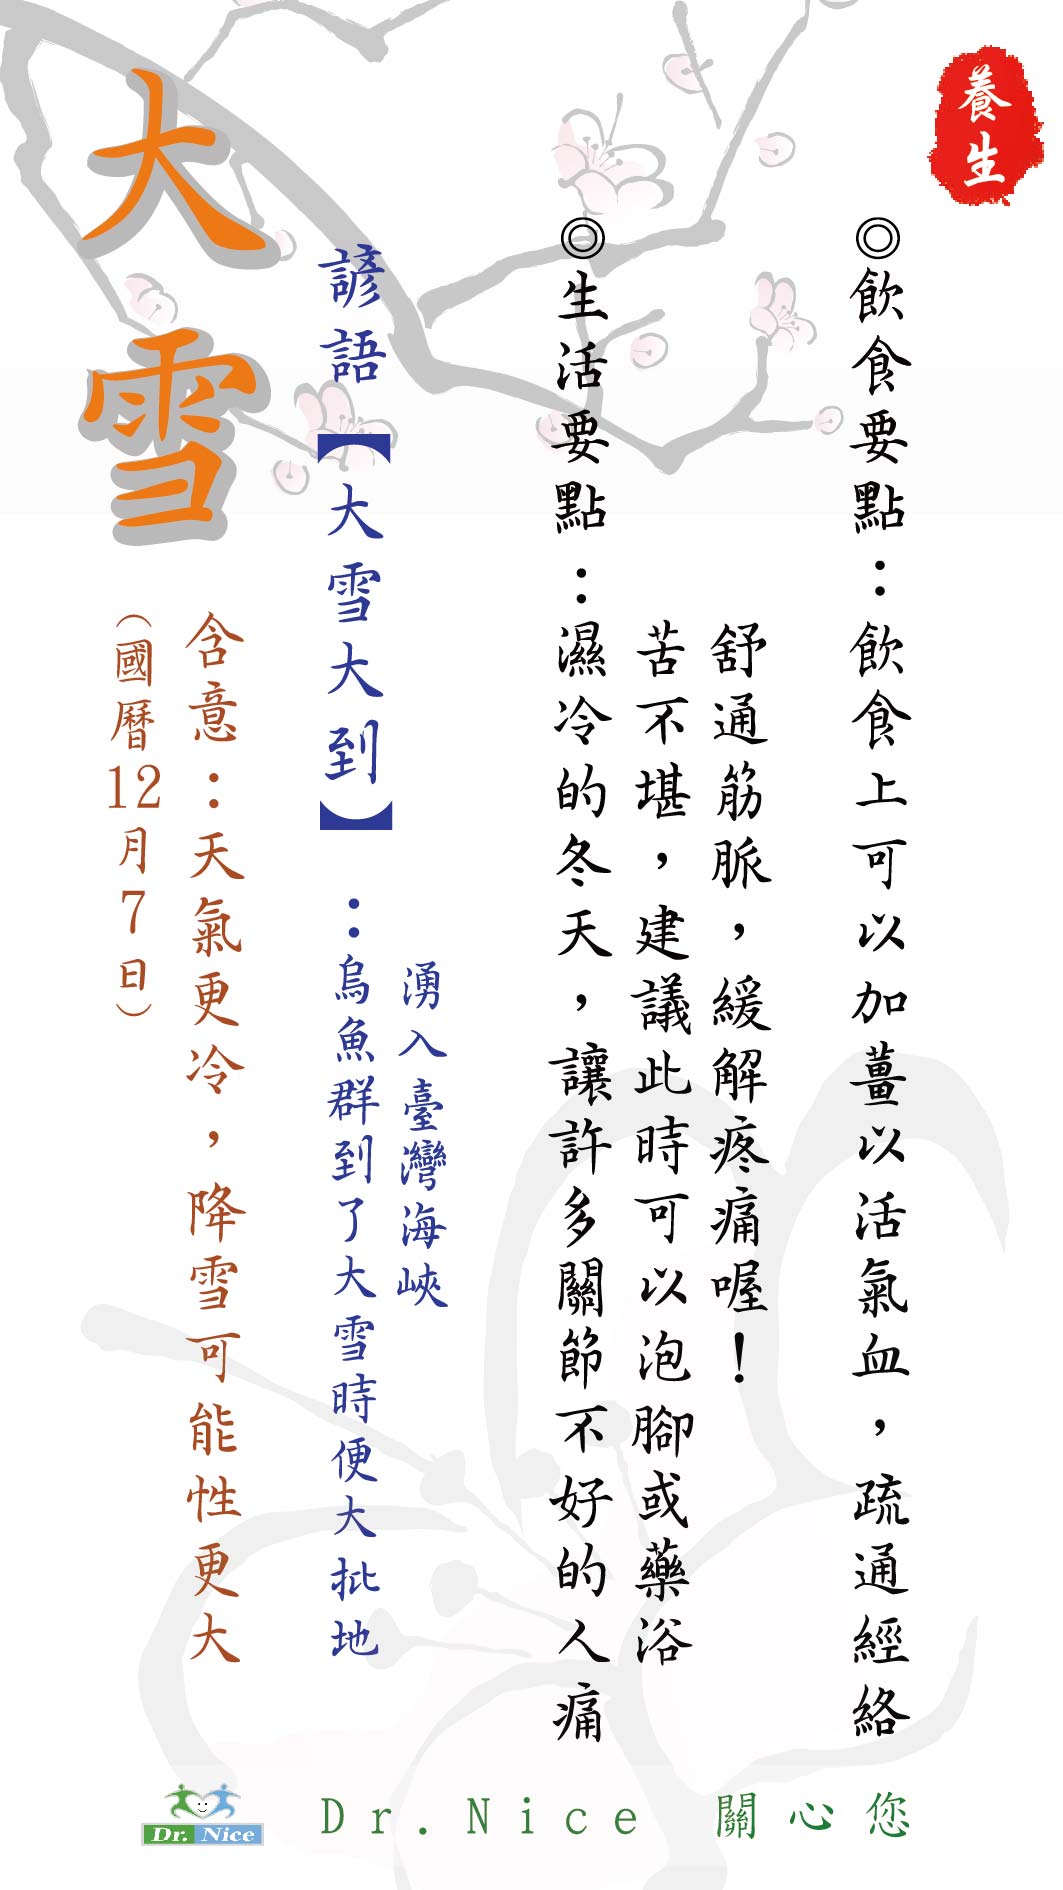 大雪
(國曆12月7日)
含意：天氣更冷，降雪可能性更大
諺語【大雪大到】：烏魚群到了大雪時便大批地
湧入臺灣海峽
◎生活要點：濕冷的冬天，讓許多關節不好的人痛
苦不堪，建議此時可以泡腳或藥浴
舒通筋脈，緩解疼痛喔！
◎飲食要點：飲食上可以加薑以活氣血，疏通經絡
養生
Dr. Nice
Dr.Nice 關心您